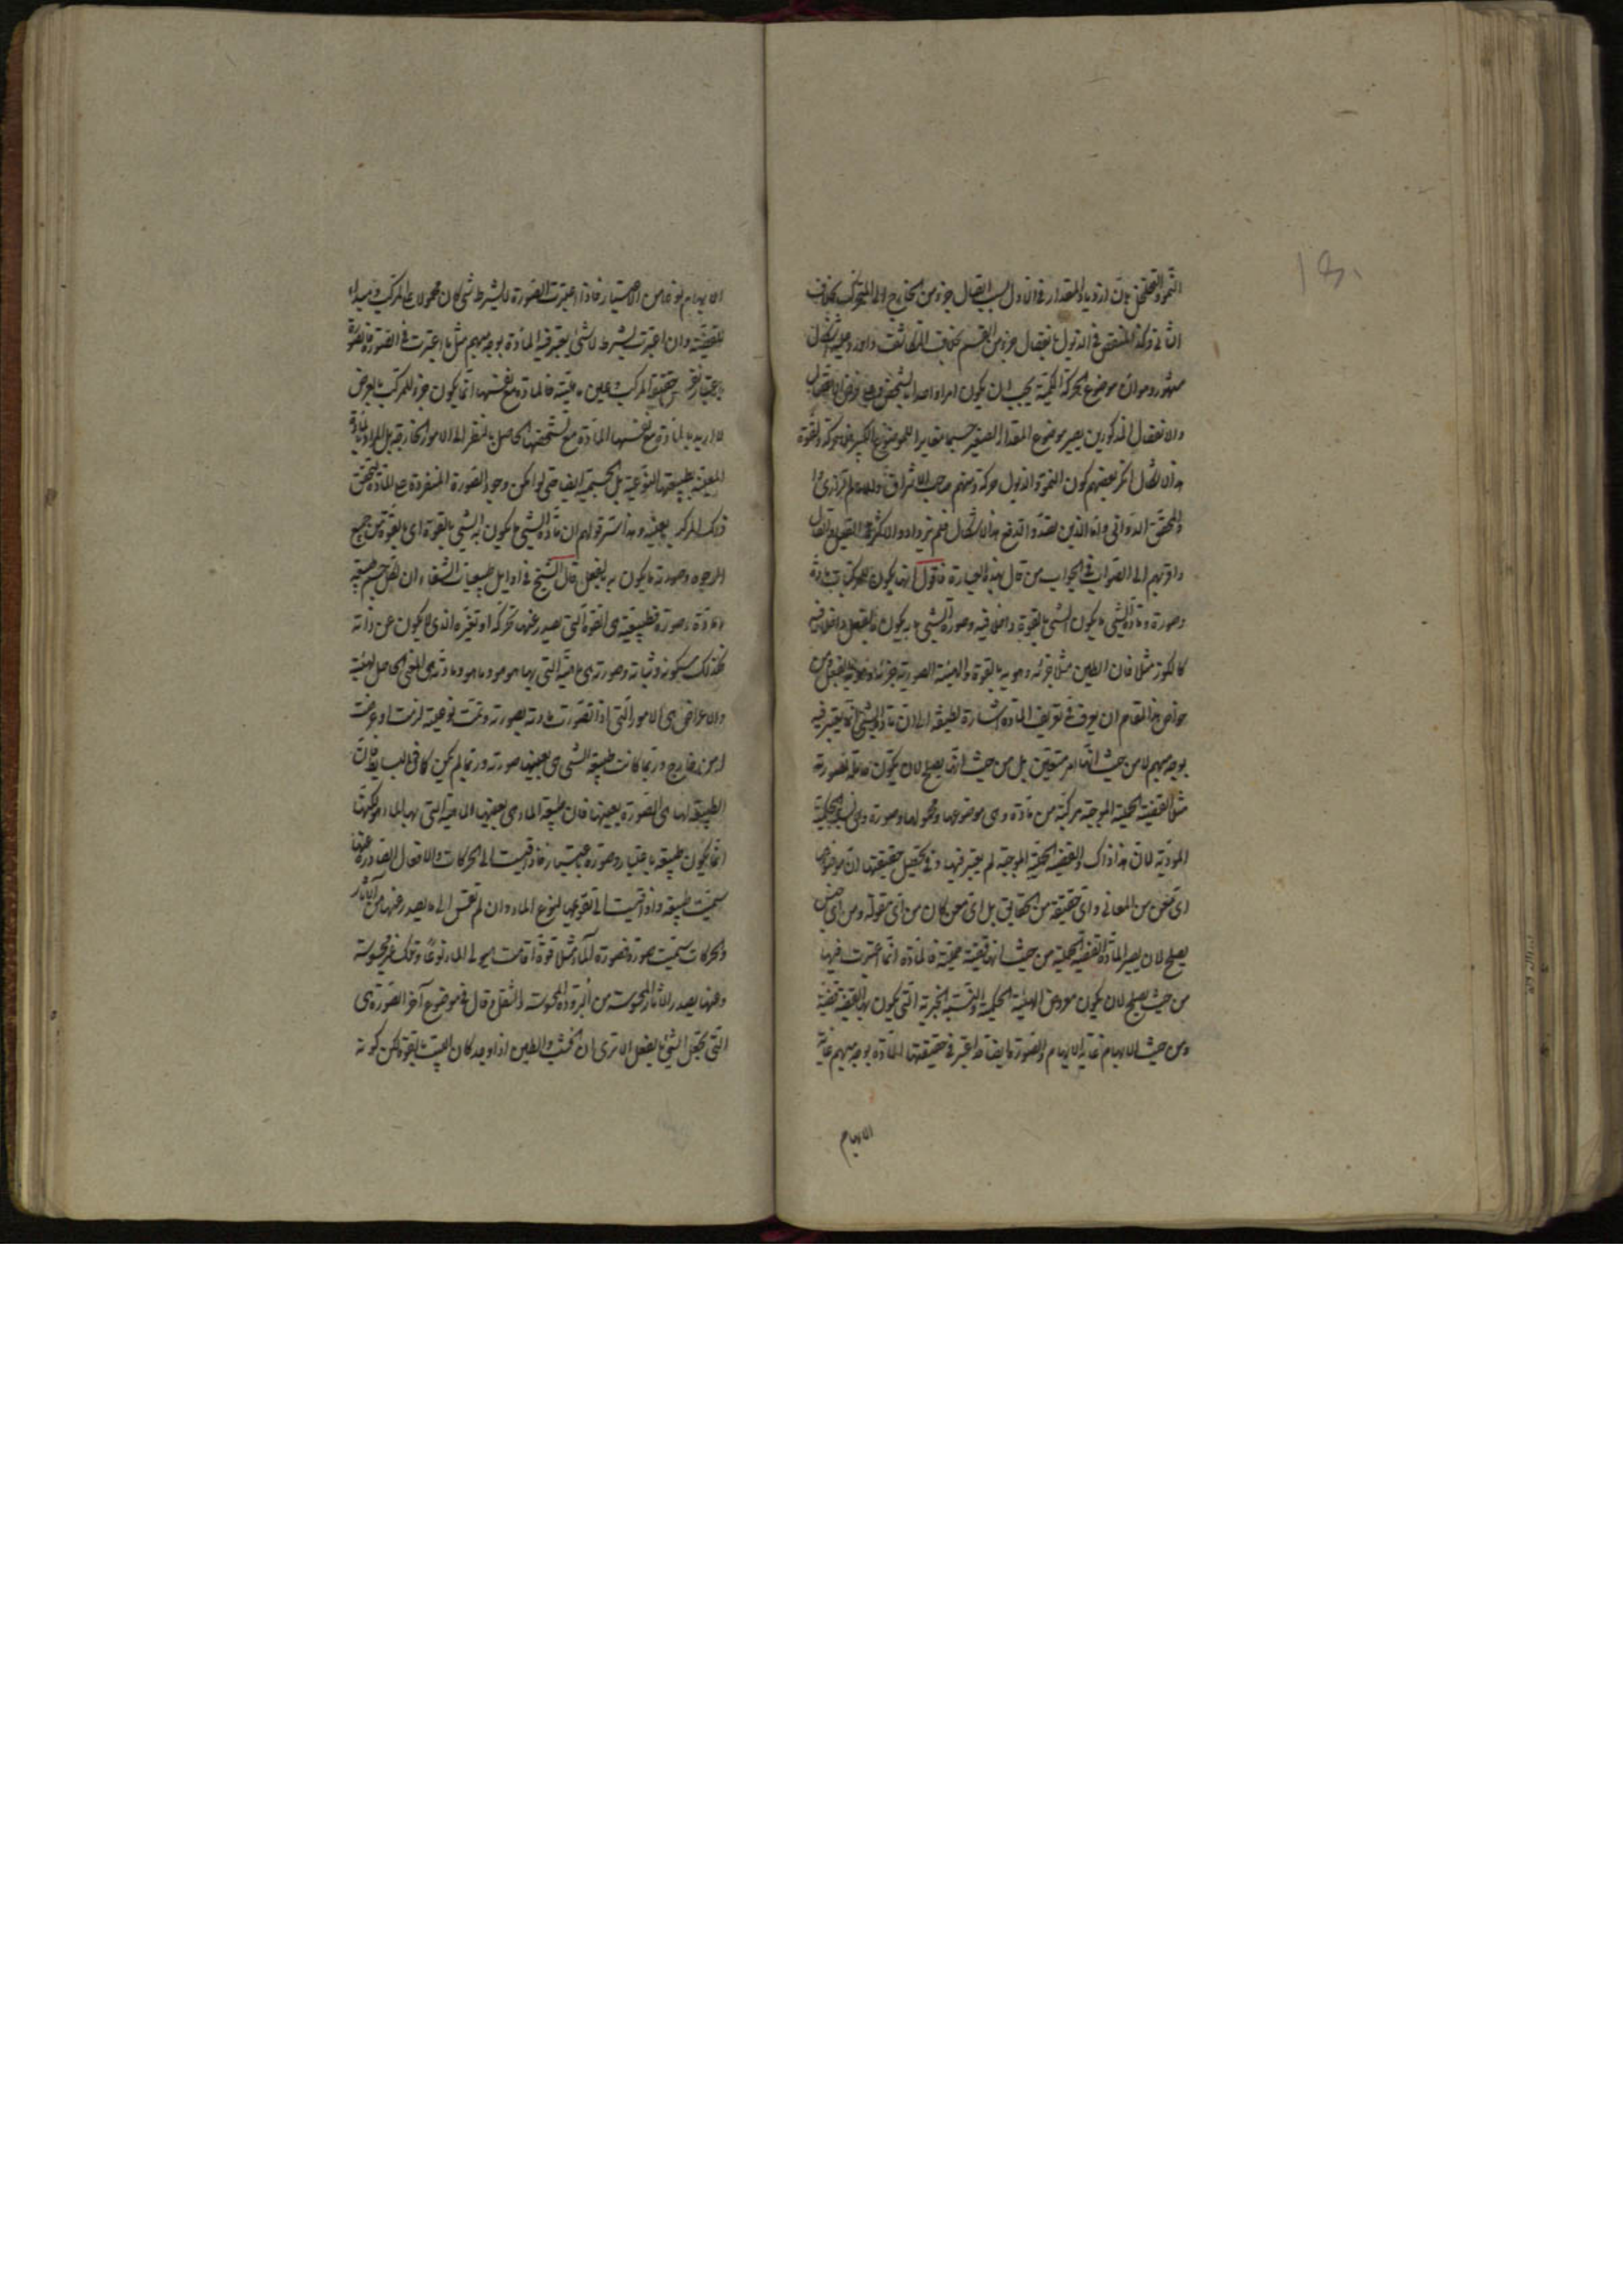 النمو والتخلخل بان ازدياد المقدار في الاول بسبب اتصال جزء من الخارج الى المتحرك بخلاف
الثاني وكذا المنتقص في الذبول بانفصال جزء من الجسم بخلاف التكاثف واورد عليه اشكال
مشهور وهو ان موضوع الحركة الكمية يجب ان يكون امرا واحدا بالشخص
والانفصال المذكورين يصير موضوع المقدار الصغير جسما مغايرا لموضوع الكبير فلا حركة ولقوة
هذا الاشكال انكر بعضهم كون النمو والذبول حركة ومنهم صاحب الاشراق
والمحقق الدواني واما الذين تصدوا لدفع هذا الاشكال فلم يزيدوا والا كثرة القيل والقال
واقربهم الى الصواب في الجواب من قال بهذه العبارة فاقول انما يكون للمركبات مادة
وصورة ومادة الشيء ما يكون الشيء بالقوة داخل فيه وصورة الشيء ما به يكون بالفعل داخلا فيه
كالكوز مثلا فان الطين مثلا جزئه وهو به بالقوة والهيئة الصورية جزئه وهو به بالفعل ومن
خواص هذا المقام ان يعرف في تعريف المادة اشارة لطيفة الى ان مادة الشيء انما يعتبر فيه
بوجه مبهم لا من حيث انها امر متعين بل من حيث انها يصلح لان يكون مادة لصورته
مثلا القضية الحملية الموجبة مركبة من مادة وهي موضوعها ومحمولها وصورة وهي نسبة الحكمية
لان هذا ذاك والقضية الحملية الموجبة لم يعتبر فيها وفي تحصيل حقيقتها ان موضوعها
اي معنى من المعاني واي حقيقة من الحقايق بل اي معنى كان من اي مقولة ومن اي جنس
يصلح لان يصير المادة القضية الحملية من حيث انها قضية حملية فالمادة انما اعتبرت فيها
من حيث يصلح لان يكون معروض الهيئة الحكمية والنسبة الخبرية التي يكون بها القضية قضية
ومن حيث الابهام غاية الابهام والصورة ايضا قد اعتبر في حقيقتها المادة بوجه مبهم غاية
الابهام
الابهام نوعا من الاعتبار فاذا اعتبرت الصورة لا بشرط شيء كان محمولا على المركب ومبدأ
للقضية وان اعتبرت بشرط لا شيء يعتبر فيه المادة بوجه مبهم مثل ما اعتبرت في الصورة فالصورة
باعتبار نفس حقيقة المركب وعين ماهيته فالمادة مع نفسها انما يكون جزء للمركب بالعرض
لا اريد بالمادة مع نفسها المادة مع تشخصها الحاصل بالنظر الى الامور الخارجة بل المراد المادة
المعينة بطبيعتها النوعية بل الجسمية ايضا حتى لو امكن وجود الصورة المنفردة عن المادة لتحقق
ذلك المركب بعينه وهذا سر قولهم ان مادة الشيء ما يكون به الشيء بالقوة اي بالقوة من جميع
الوجوه وصورته ما يكون به بالفعل قال الشيخ في اوايل طبيعيات الشفاء ان لكل جسم طبيعة
ومادة وصورة فطبيعته هي القوة التي يصدر عنها تحركه او تغيره الذي لا يكون عن ذاته
وكذلك سكونه وثباته وصورته هي ماهيته التي بها هو ما هو ومادته هي المعنى الحامل لماهيته
والاعراض هي الامور التي اذا تصورت مادته بصورته وتمت نوعيته لزمت او عرضت
له من خارج وربما كانت طبيعة الشيء هي بعينها صورته وربما لم يكن كما في البسايط فان
الطبيعة لها هي الصورة بعينها فان طبيعة الماء هي بعينها الماهية التي بها الماء هو لكنها
انما يكون طبيعة باعتبار وصورة باعتبار فاذا قيست الى الحركات والافعال الصادرة عنها
سميت طبيعة واذا قيست الى تقويمها لنوع الماء وان لم تقس الى ما يصدر عنها من الآثار
والحركات سميت صورة فصورة الماء مثلا قوة اقامت هيولى الماء نوعا وتلك غير محسوسة
وعنها يصدر الآثار المحسوسة من البرودة المحسوسة والثقل وقال في موضع آخر الصورة هي
التي تجعل الشيء بالفعل الا ترى ان الخشب والطين اذا وجد كان البيت بالقوة لكن كونه